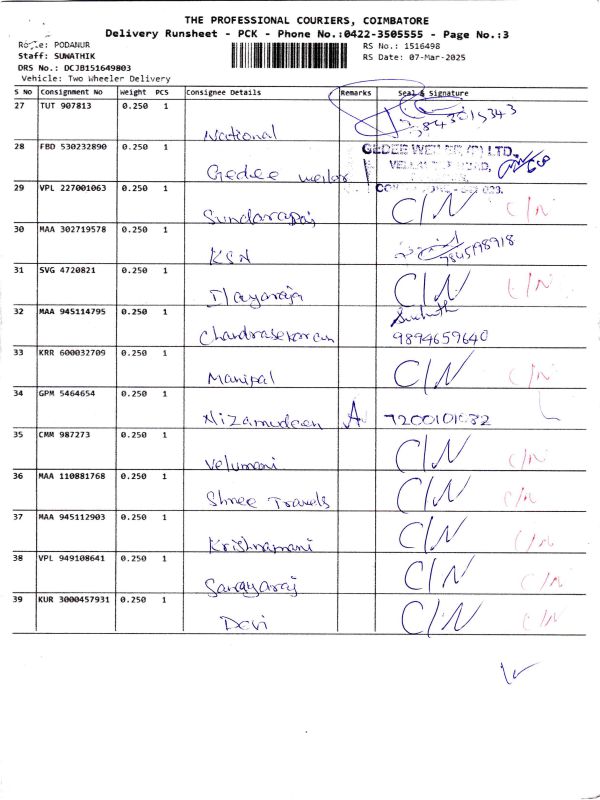 THE PROFESSIONAL COURIERS, COIMBATORE
Delivery Runsheet - PCK - Phone No.:0422-3505555 - Page No.:3
Route: PODANUR
RS No.: 1516498
Staff: SUNATHIK
RS Date: 07-Mar-2025
DRS No.: DCJB151649803
Vehicle: Two Wheeler Delivery
S NO Consignment No Weight PCS Consignee Details Remarks Seal & Signature
27 TUT 907813 0.250 1
National
28 FBD 530232890 0.250 1 GEDEE
LTD.,
Gedee weiler
29 VPL 227001063 0.250 1
Sundararaj C/N C/N
30 MAA 302719578 0.250 1
KSN
31 SVG 4720821 0.250 1
Ilayaraja C/N C/N
32 MAA 945114795 0.250 1
Chandrasekaran 9894659640
33 KRR 600032709 0.250 1
Manipal C/N C/N
34 GPM 5464654 0.250 1
Nizamudeen
35 CMM 987273 0.250 1
Velumani C/N C/N
36 MAA 110881768 0.250 1
Shree Travels C/N C/N
37 MAA 945112903 0.250 1
Krishnamani C/N C/N
38 VPL 949108641 0.250 1
C/N C/N
39 KUR 3000457931 0.250 1
Devi C/N C/N